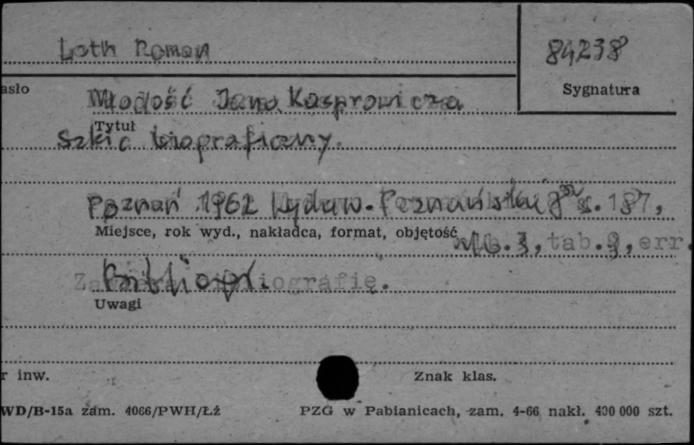 Loth Roman
84238
asło
Sygnatura
Młodość Jana Kasprowicza
Tytuł
Szkic biograficzny.
Poznań 1962 Wydaw. Poznańskie 8° s. 187,
Miejsce, rok wyd., nakładca, format, objętość
nlb. 3, tab. 9, err.
Bibliogr.
Uwagi
r inw.
Znak klas.
WD/B-15a zam. 4066/PWH/Łź
PZG w Pabianicach, zam. 4-66 nakł. 400 000 szt.